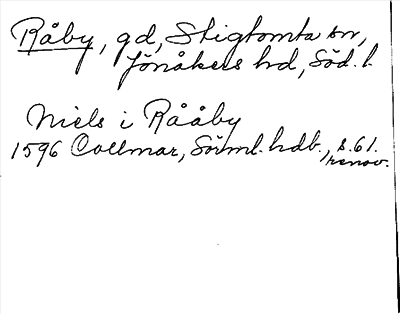 Råby, gd, Stigtomta sn,
Jönåkers hd, Söd. l.
Niels i Rååby
1596 Collmar, Sörml. hdb., s. 61.
renov.